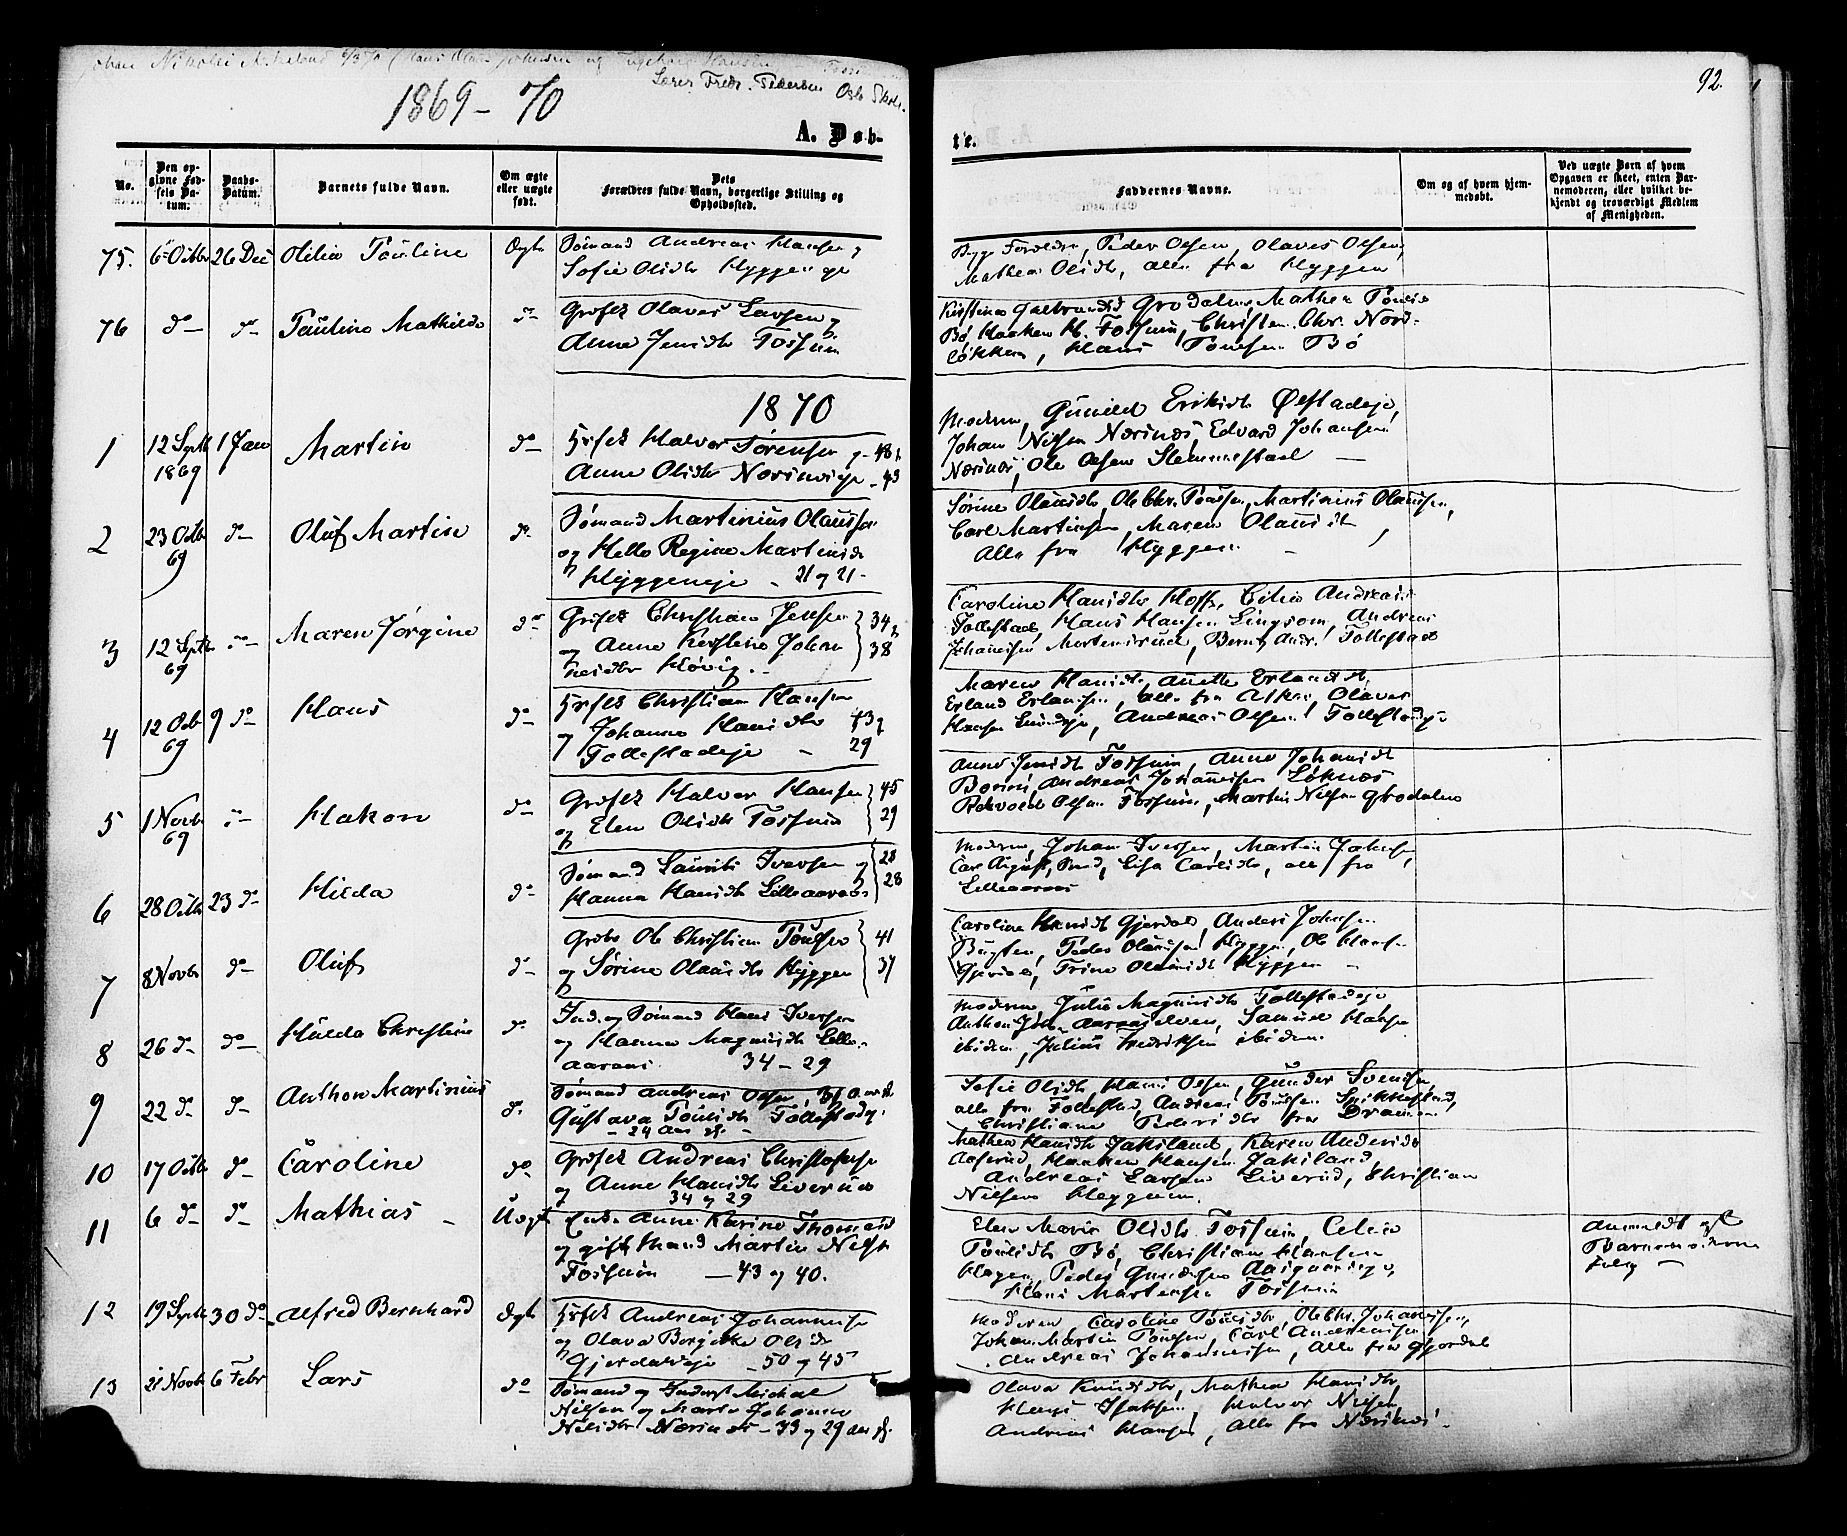 Johan Nikolai
Lærer Fredr. Pedersen Oslo Skole.
1869-70
92.
A. Døb-
te.
No.
Den opgivne Fødsels Datum.
Daabs-Datum.
Barnets fulde Navn.
Om ægte eller uægte født.
Dets Forældres fulde Navn, borgerlige Stilling og Opholdssted.
Faddernes Navne.
Om og af hvem hjemmedøbt.
Ved uægte Børn af hvem Opgaven er skeet, enten Barnemoderen, eller hvilket bekjendt og troværdigt Medlem af Menigheden.
75. 6 Octbr 26 Dec Olilia Pauline Ægte Sømand Andreas Hansen og
Sofie Olsdtr Hyggen eje
Begge Forældre, Peder Olsen, Olaves Olsen,
Mathea Olsdtr, alle fra Hyggen
76 do do Pauline Mathilde do Grdfst Olaves Larsen og
Anne Jensdtr Fossum
Mathea Pouls
Bø, Haaken H. Fossum, Christen Chr. Nord-
løkken, Hans Poulsen Bø
1870
1 12 Septbr 1869 1 Jan Martin do Hrfst Halvor Sørensen og - 48
Anne Olsdtr Nærsnæs - 43
Moderen, Gunild Eriksdtr Ølstadeje,
Johan Nilsen Nærsnæs, Edvard Johansen
Nærsnæs, Ole Olsen Slemmestad -
2 23 Octbr 69 do Oluf Martin do Sømand Martinius Olaussen
og Helle Regine Martinsdtr
Hyggeneje - 21 og 21 -
Sørine Olausdtr, Ole Chr. Poulsen, Martinius Olaussen,
Carl Martinsen, Maren Olausdtr,
Alle fra Hyggen -
3 12 Septbr 69 do Maren Jørgine do Grdfst Christian Jensen
og Anne Kirstine Johan-
nesdtr Høvig. 34 og 38
Caroline Hansdtr Hoff, Cilia Andreasdtr
Follestad, Hans Hansen Lingsom, Andreas
Johannesen Mortensrud, Bernt Andr. Follestad
4 12 Octbr 69 9 do Hans do Hrfst Christian Hansen
og Johanne Hansdtr 43 og
Follestadeje - 29
Maren Hansdtr, Anette Erlandsdtr,
Erland Erlandsen, alle fra Asker, Olaves
Hansen, Andreas Olsen Follestadeje
5 1 Novbr 69 do Hakon do Grdfst Halvor Hansen
og Elen Olsdtr Fossum 45 29
Anne Jensdtr Fossum, Anne Johansdtr
Andreas Johannesen Løknæs
Olsen Fossum, Martin Nilsen Grodalen
6 28 Octbr 23 do Hilda do Sømand Laurits Iversen og
Hanna Hansdtr Lilleaaraas 28 28
Moderen, Johan Iversen, Martin Johnsen
Carl August, Lisa Carlsdtr, alle fra
Lilleaaraas
7 8 Novbr do Oluf do Grdbr Ole Christian Poulsen
og Sørine Olausdtr Hyggen 41 37
Caroline Hansdtr Gjerdal, Anders Johnsen
Bugten, Peder Olaussen Hyggen, Ole Hansen
Gjerdal, Trine Olausdtr Hyggen -
8 26 do do Hulda Christine do Ind. og Sømand Hans Iversen
og Hanna Magnusdtr Lille-
aaraas 34 - 29
Moderen, Julie Magnusdtr Follestadeje
Anthon Joh. Aaraaselven, Samuel Hansen
ibidem, Julius Fredriksen ibidem.
9 22 do do Anthon Martinius do Sømand Andreas Olsen, 31 Aar &
Gustava Poulsdtr Follestadeje
- 24 Aar gl. -
Sofie Olsdtr, Hans Olsen, Gunder Svendsen,
alle fra Follestad, Andreas Poulsen Spikkestad,
Christiane Pedersdtr fra Drammen
10 17 Octbr do Caroline do Grdfst Andreas Christofersen
og Anne Hansdtr Liverud
34 og 29
Mathea Hansdtr Jaksland, Karen Andersdtr
Aaserud, Haaken Hansen Jaksland,
Andreas Larsen Liverud, Christian
Nilsen Heggum.
11 6 do do Mathias - Uægte Enke Anne Karine Thomasd
og gift Mand Martin Nilsen
Fossum - 43 og 40.
Elen Marie Olsdtr Fossum, Celia
Poulsdtr Bø, Christian Hansen
Hagen, Peder Gundersen
Hans Martinsen Fossum
Anmeldt af
Barnemoderen
selv -
12 19 Septbr 30 do Alfred Bernhard Ægte Hrfst Andreas Johannesen
og Olava Borgitte Olsdtr
Gjerdaleje - 50 og 45
Moderen, Caroline Poulsdtr, Ole Chr. Johannesen,
Johan Martin Poulsen, Carl Andreassen
Andreas Johannesen, alle fra Gjerdal
13 21 Novbr 6 Febr Lars do Sømand og Inderst Michael
Nilsen og Marte Johanne
Nilsdtr Nærsnæs - 33 og 29 Aar gl.
Olava Knudsdtr, Mathea Hansdtr
Hans Isaksen, Halvor Nilsen
Andreas Hansen, alle fra Nærsnæs -